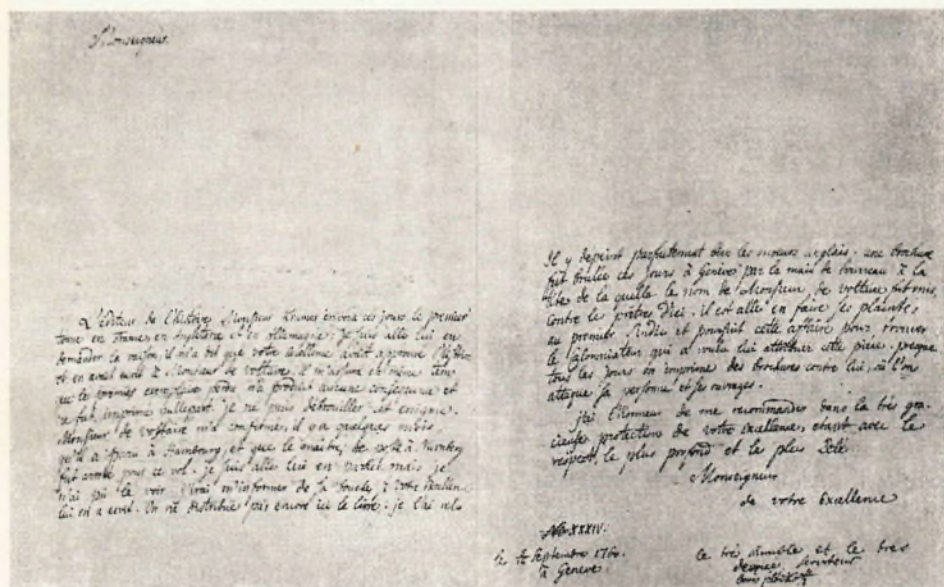 Monseigneur.
L'editeur de l'histoire Monsieur envoia ces jours le premier
tome en France, en Angleterre et en Allemagne; je suis allé lui en
demander la raison, il m'a dit que votre Excellence avoit approuvé
et en avoit ecrit à Monsieur de voltaire. il m'assura et même
que le premier exemplaire perdu n'a produit aucune consequence et
ne fut imprimé nullepart. je ne puis débrouiller cet enigme.
Monsieur de voltaire m'a confirmé, il y a quelques mois,
qu'il a à Hambourg, et que le maitre de poste à Nurnberg
fut pour ce vol. je suis allé lui en parler mais je
n'ai pû le voir. j'irai m'informer de la si votre Excellence
lui en a ecrit. On ne distribue pas encore ici le livre. je l'ai
Il y depeint parfaitement bien les mœurs anglais. une brochure
fut brûlée ces jours à Genève par la main de bourreau à la
tête de la quelle le nom de Monsieur de voltaire fut mis,
contre les prêtres d'ici. il est allé en faire ses plaintes
au premier Sindic et poursuit cette affaire pour trouver
le calomniateur qui a voulu lui attribuer cette piece. presque
tous les jours on imprime des brochures contre lui, où l'on
attaque sa personne et ses ouvrages.
j'ai l'honneur de me recommander dans la très gra-
cieuse protection de votre excellence, etant avec le
respect, le plus profond et le plus zelé
Monseigneur
de votre Excellence
No XXXIV.
Septembre 1760.
à Geneve.
le très humble et le tres
serviteur